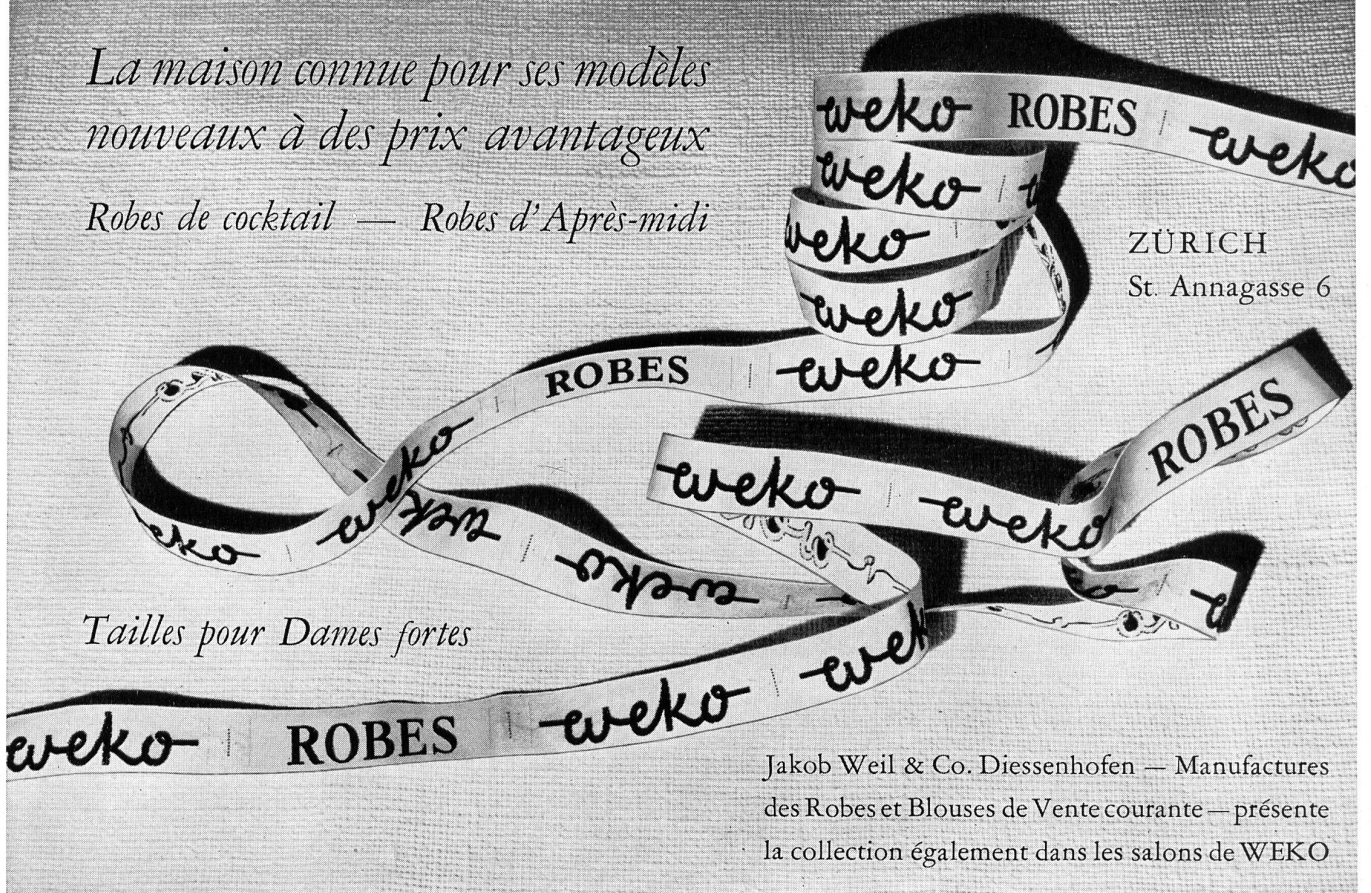 La maison connue pour ses modèles
nouveaux à des prix avantageux
Robes de cocktail — Robes d'Après-midi
weko ROBES weko
weko
weko
weko
ZÜRICH
St. Annagasse 6
ROBES weko
weko
weko weko ROBES
weko
weko
Tailles pour Dames fortes
weko ROBES weko
Jakob Weil & Co. Diessenhofen — Manufactures
des Robes et Blouses de Vente courante — présente
la collection également dans les salons de WEKO